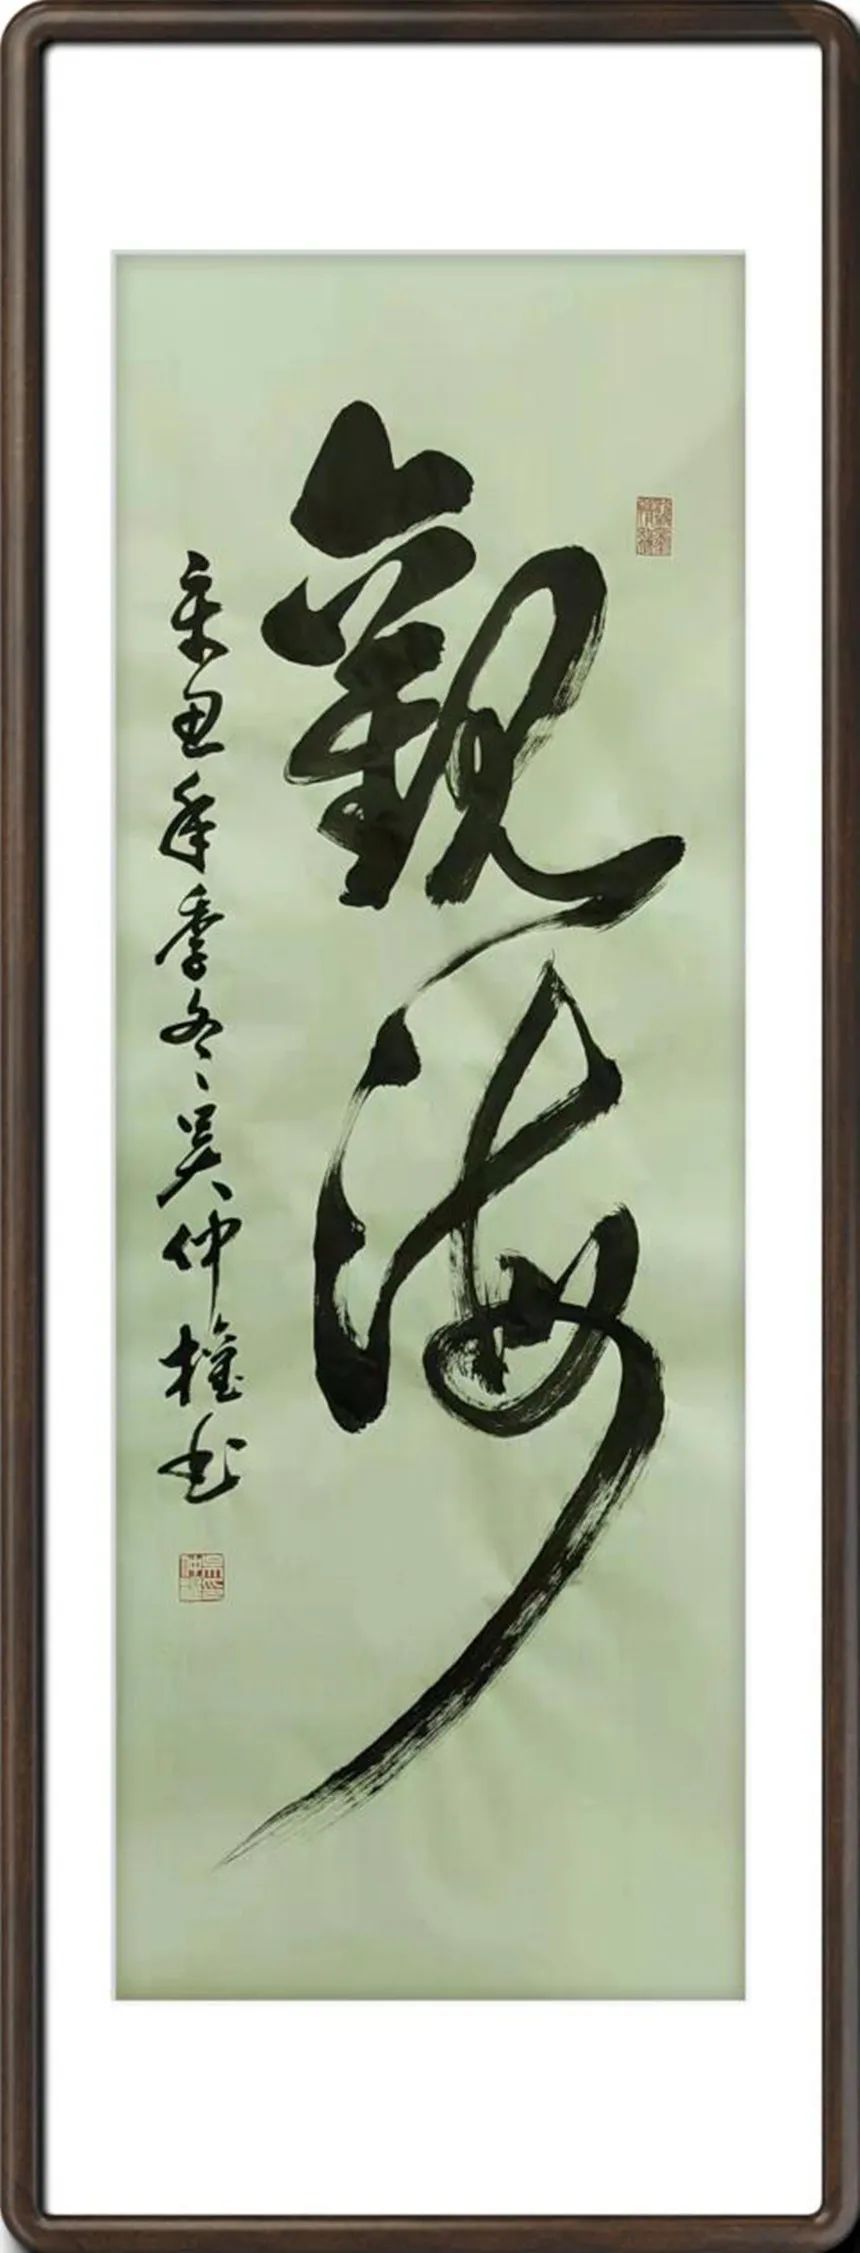 觀海
辛丑年季冬吴仲權书